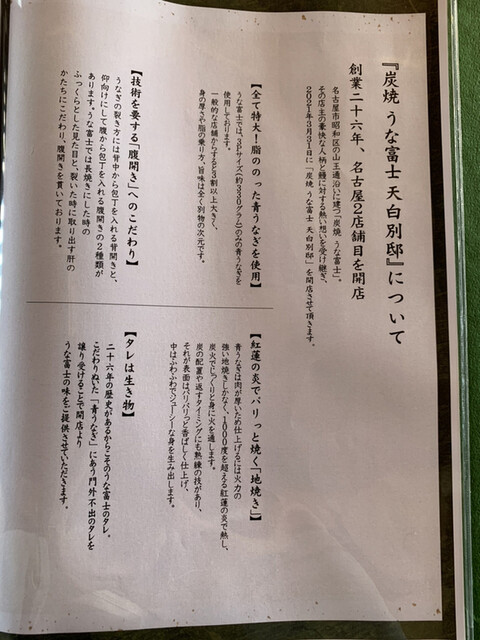 『炭焼 うな富士 天白別邸』について
創業二十六年、名古屋2店舗目を開店
名古屋市昭和区の山王通沿いに建つ「炭焼 うな富士」。
その店主の豪快な人柄と鰻に対する熱い想いを受け継ぎ、
2021年3月31日に「炭焼 うな富士 天白別邸」を開店させて頂きます。
【全て特大！脂ののった青うなぎを使用】
うな富士では、3Pサイズ（約320グラム）のみの青うなぎを
使用しております。
一般的な店舗からすると3割以上大きく、
身の厚さや脂の乗り方、旨味は全く別物の次元です。
【技術を要する「腹開き」へのこだわり】
うなぎの裂き方には背中から包丁を入れる背開きと、
仰向けにして腹から包丁を入れる腹開きの2種類が
あります。うな富士では長焼きにした時の
ふっくらとした見た目と、裂いた時に取り出す肝の
かたちにこだわり、腹開きを貫いております。
【紅蓮の炎でパリっと焼く「地焼き」】
青うなぎは肉が厚いため仕上げるには火力の
強い地焼きしかなく、1000度を超える紅蓮の炎で熱し、
炭火でじっくりと身に火を通します。
炭の配置や返すタイミングにも熟練の技があり、
それが表面はパリパリっと香ばしく仕上げ、
中はふわふわでジューシーな身を生み出します。
【タレは生き物】
二十六年の歴史があるからこそのうな富士のタレ。
こだわりぬいた「青うなぎ」にあう門外不出のタレを
譲り受けることで開店より
うな富士の味をご提供させていただきます。